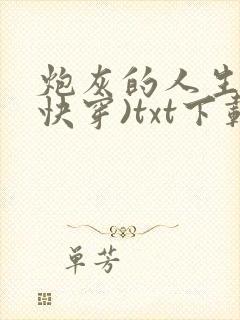 炮灰的人生
快穿)txt下载
单芳